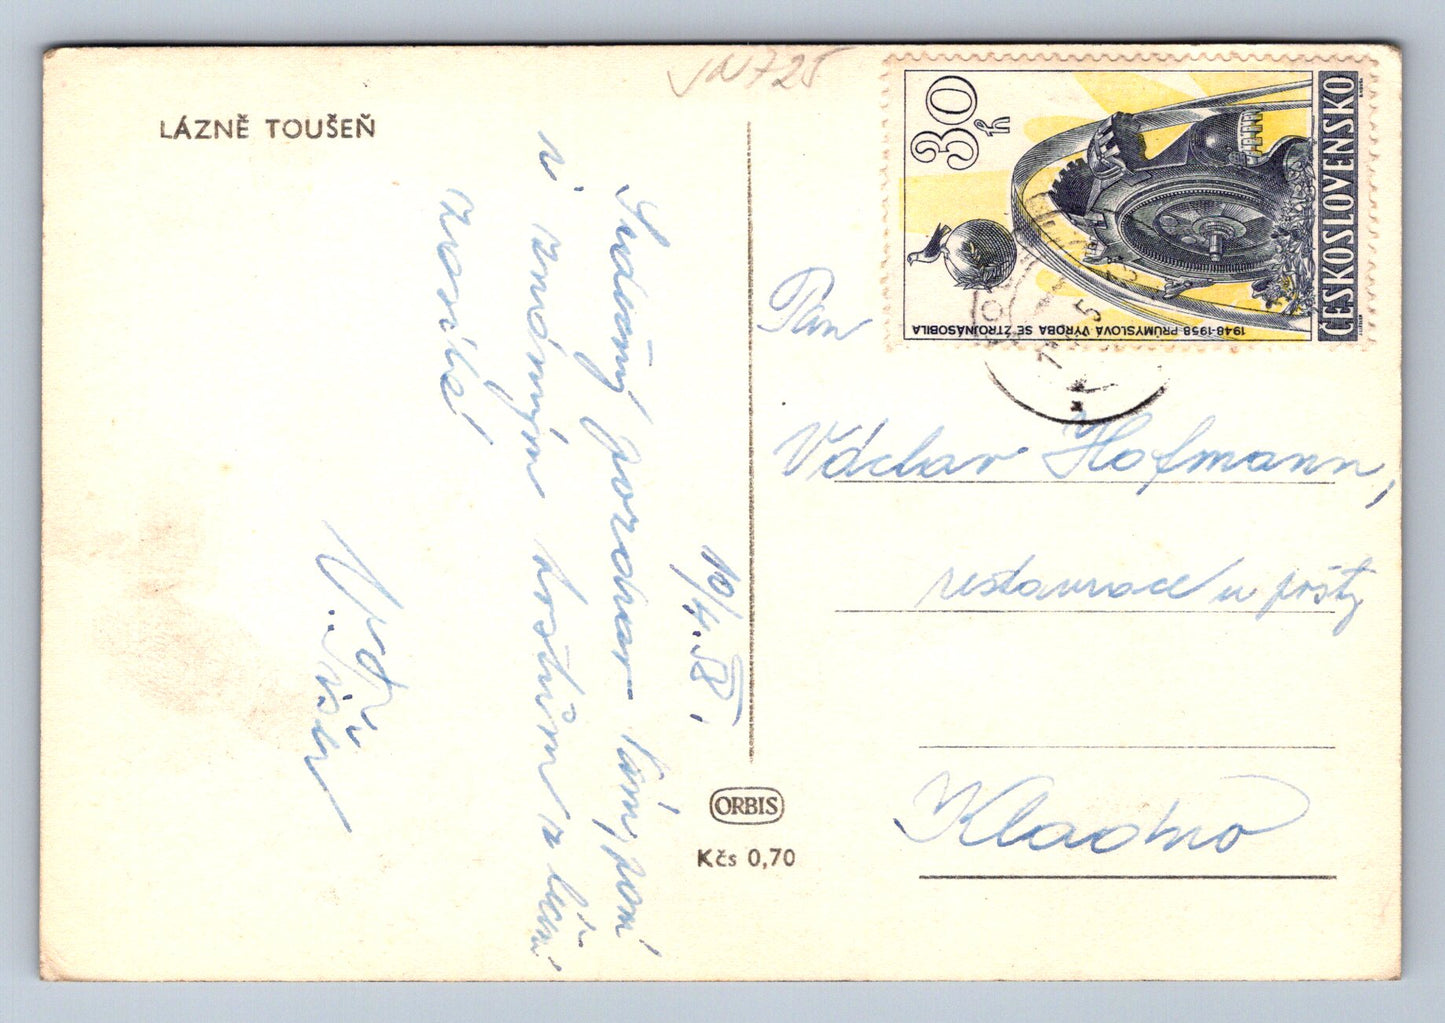 LÁZNĚ TOUŠEŇ
10/4. 58.
Srdečný pozdrav Vám, paní
i známým hostům z léčení
zasílá
V. 
ORBIS
Kčs 0,70
30
h
1948-1958 PRŮMYSLOVÁ VÝROBA SE ZTROJNÁSOBILA
ČESKOSLOVENSKO
Pan
Václav Hofmann,
restaurace u pošty
Kladno